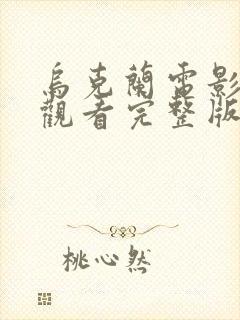 烏克蘭電影
觀看完整版
桃心然